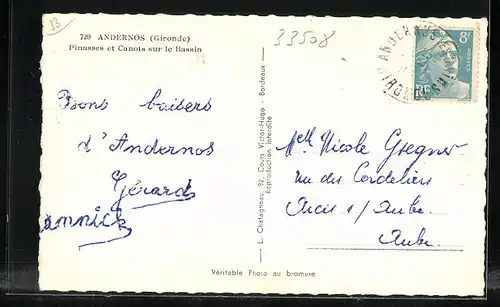 33
729 ANDERNOS (Gironde)
Pinasses et Canots sur le Bassin
33508
8F
RF
Bons baisers
d'Andernos
Gérard
annick
L. Chatagneau, 92, Cours Victor-Hugo - Bordeaux
Reproduction interdite
Melle Nicole Gregner
rue des Cordeliers
Arcis s/ Aube
Aube
Véritable Photo au bromure